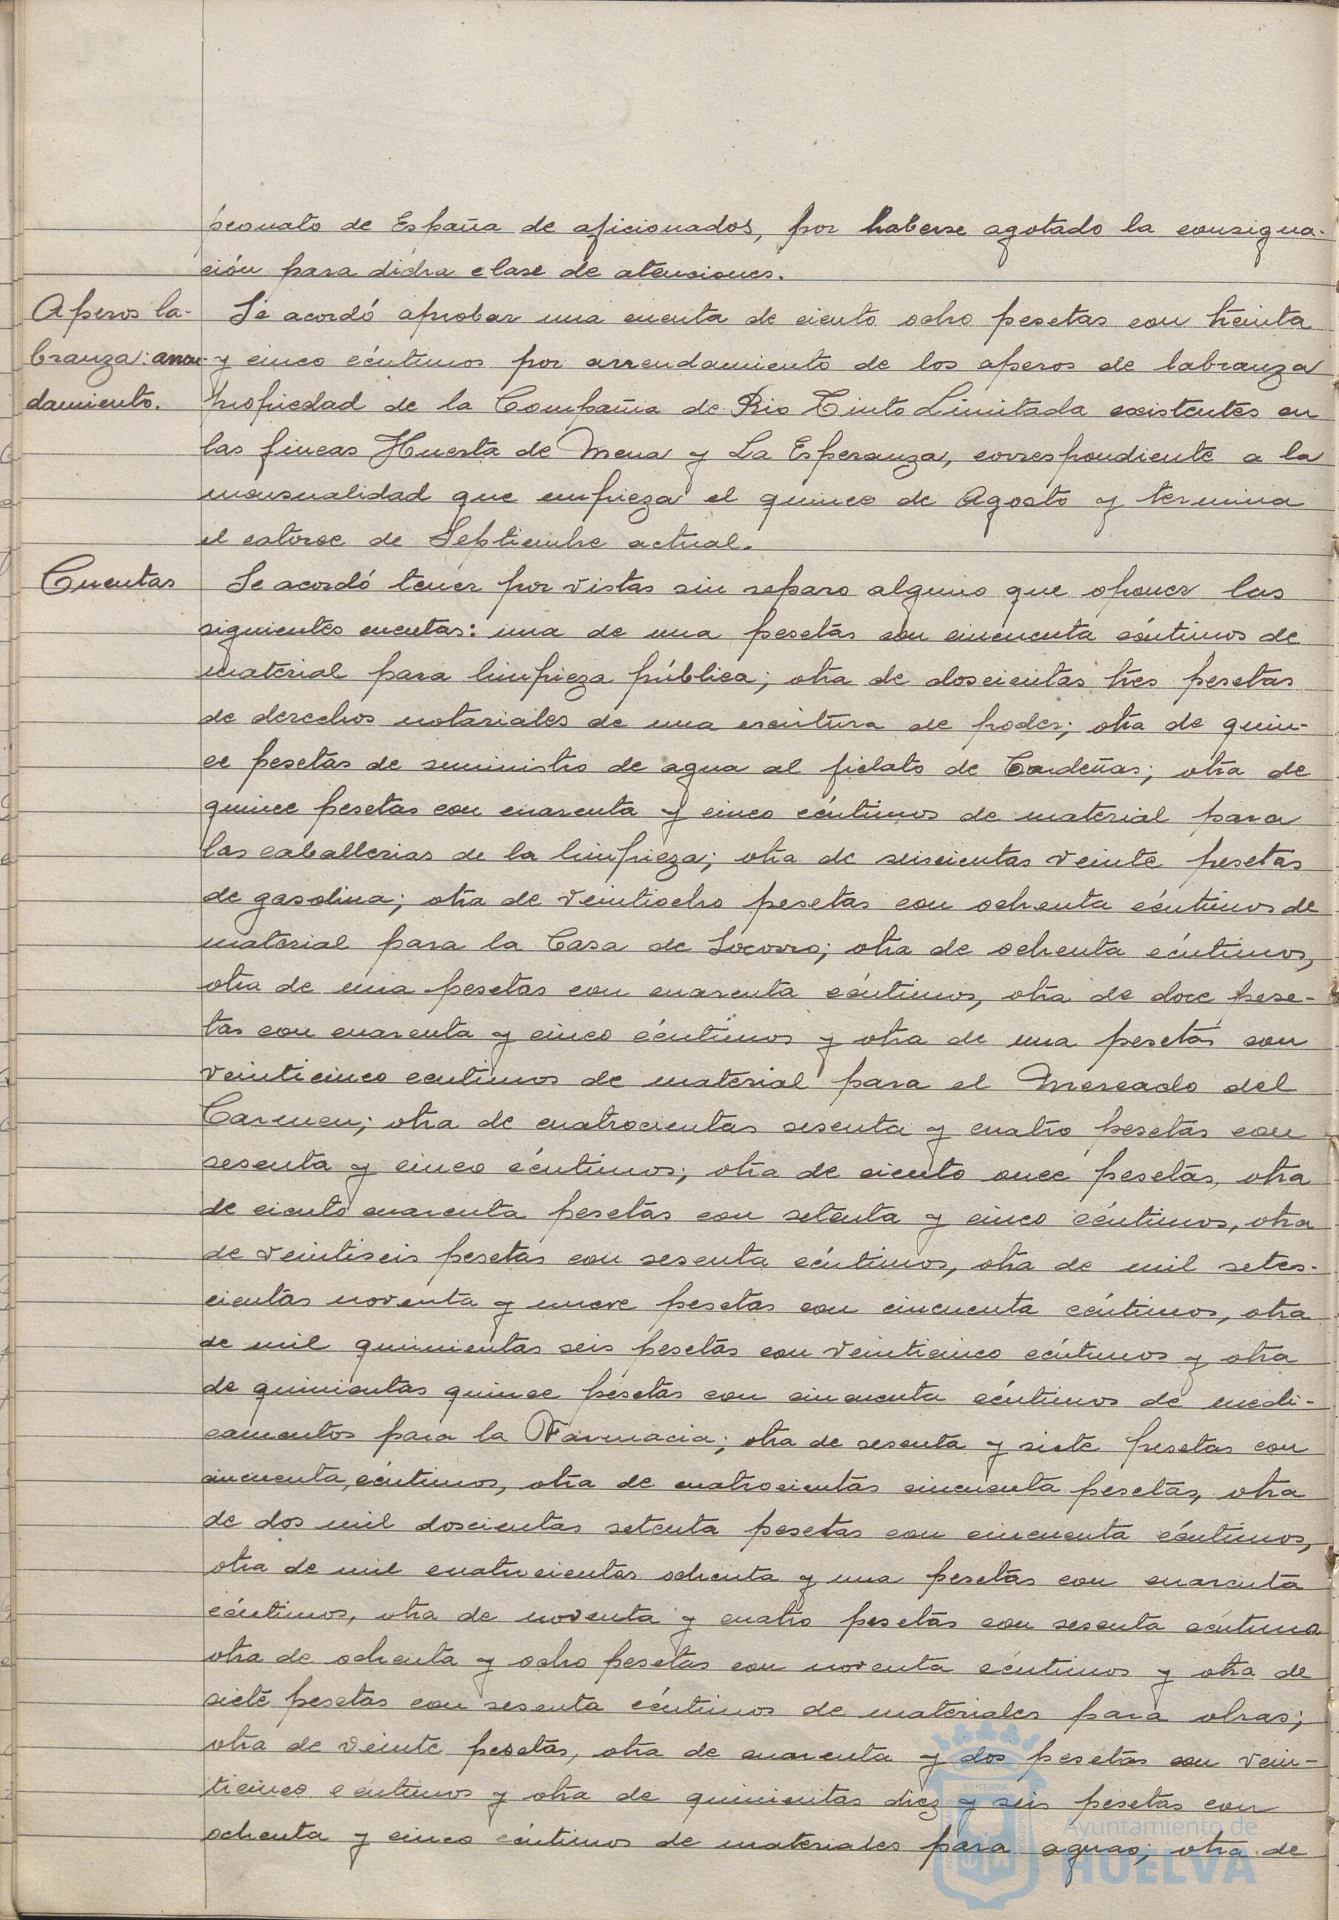 peonato de España de aficionados, por haberse agotado la consigna-
ción para dicha clase de atenciones.
Aperos la-
branza: arren-
damiento.
Se acordó aprobar una cuenta de ciento ocho pesetas con treinta
y cinco céntimos por arrendamiento de los aperos de labranza
propiedad de la Compañia de Rio Tinto Limitada existentes en
las fincas Huerta de Mena y La Esperanza, correspondiente a la
mensualidad que empieza el quince de Agosto y termina
el catorce de Septiembre actual.
Cuentas
Se acordó tener por vistas sin reparo alguno que oponer las
siguientes cuentas: una de una pesetas con cincuenta céntimos de
material para limpieza pública; otra de doscientas tres pesetas
de derechos notariales de una escritura de poder; otra de quin-
ce pesetas de suministro de agua al fielato de Cardeñas; otra de
quince pesetas con cuarenta y cinco céntimos de material para
las caballerias de la limpieza; otra de seiscientas veinte pesetas
de gasolina; otra de veintiocho pesetas con ochenta céntimos de
material para la Casa de Socorro; otra de ochenta céntimos,
otra de una pesetas con cuarenta céntimos, otra de doce pese-
tas con cuarenta y cinco céntimos y otra de una pesetas con
veinticinco centimos de material para el Mercado del
Carmen; otra de cuatrocientas sesenta y cuatro pesetas con
sesenta y cinco céntimos; otra de ciento once pesetas, otra
de ciento cuarenta pesetas con setenta y cinco céntimos, otra
de veintiseis pesetas con sesenta céntimos, otra de mil setes-
cientas noventa y nueve pesetas con cincuenta céntimos, otra
de mil quinientas seis pesetas con veinticinco céntimos y otra
de quinientas quince pesetas con cincuenta céntimos de medi-
camentos para la Farmacia; otra de sesenta y siete pesetas con
cincuenta, céntimos, otra de cuatrocientas cincuenta pesetas, otra
de dos mil doscientas setenta pesetas con cincuenta céntimos,
otra de mil cuatrocientas ochenta y una pesetas con cuarenta
céntimos, otra de noventa y cuatro pesetas con sesenta céntimos
otra de ochenta y ocho pesetas con noventa céntimos y otra de
siete pesetas con sesenta céntimos de materiales para obras;
otra de veinte pesetas, otra de cuarenta y dos pesetas con vein-
ticinco centimos y otra de quinientas diez y seis pesetas con
ochenta y cinco céntimos de materiales para aguas; otra de
Ayuntamiento de
HUELVA